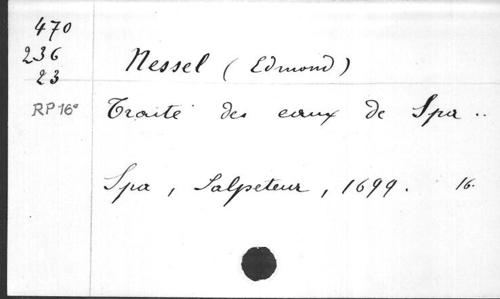 470
236
23
RP 16°
Nessel (Edmond)
Traité des eaux de Spa ..
Spa, Salpeteur, 1699. 16.